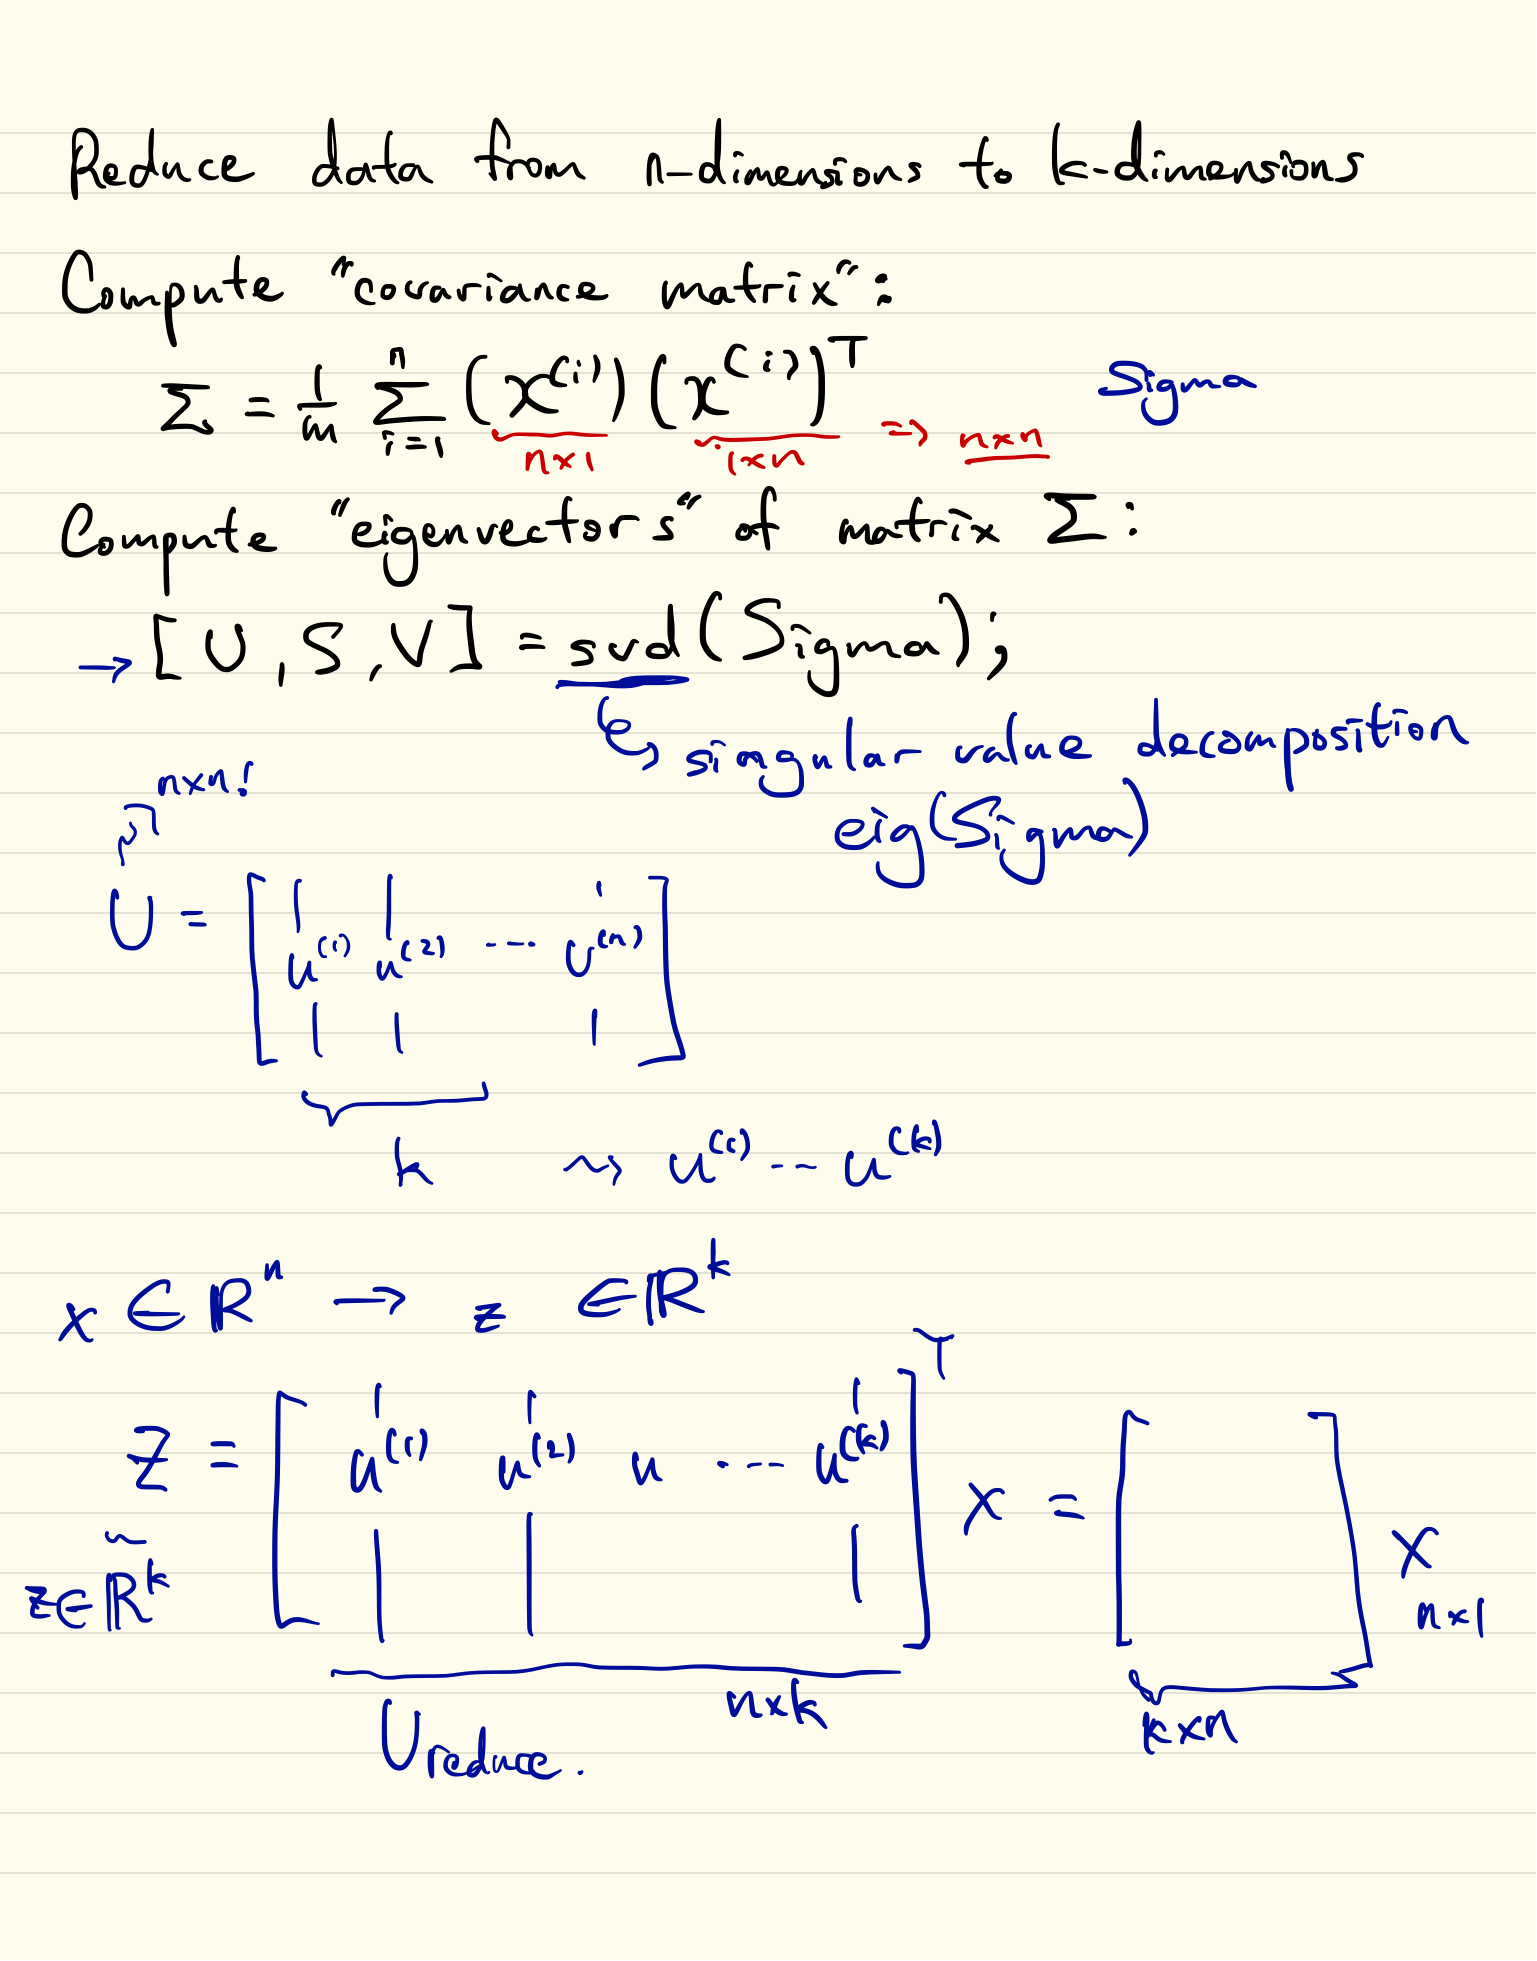 Reduce data from n-dimensions to k-dimensions
Compute "covariance matrix":
Σ = 1/m Σ_{i=1}^{n} (x^{(i)}) (x^{(i)})^T Sigma
n×1 1×n => n×n
Compute "eigenvectors" of matrix Σ:
→ [U, S, V] = svd(Sigma);
↳ singular value decomposition
n×n! eig(Sigma)
U = [ u^{(1)} u^{(2)} ... u^{(n)} ]
k ⇝ u^{(1)} ... u^{(k)}
x ∈ ℝ^n → z ∈ ℝ^k
Z = [ u^{(1)} u^{(2)} u ... u^{(k)} ]^T x = [ ] x
z∈ℝ^k n×1
n×k k×n
U_reduce.